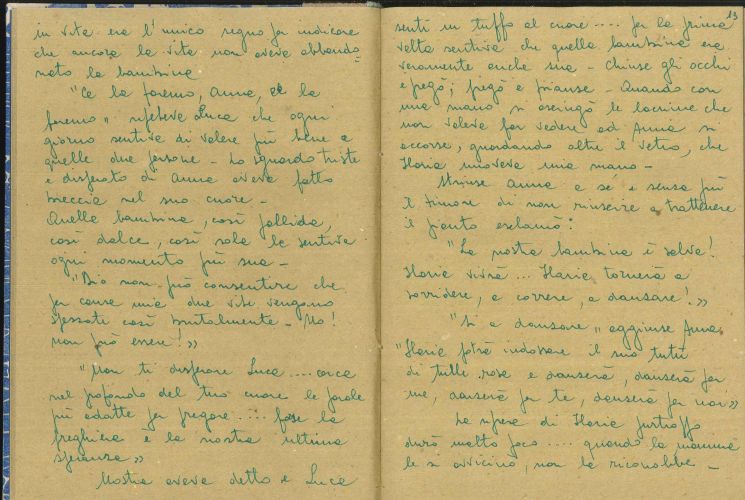 in vita era l'unico segno per indicare
che ancora la vita non aveva abbando
nato la bambina
"Ce la faremo, Anna, ce la
faremo" ripeteva Luca che ogni
giorno sentiva di volere più bene a
quelle due persone - Lo sguardo triste
e disperato di Anna aveva fatto
breccia nel suo cuore -
Quella bambina, così pallida,
così dolce, così sola la sentiva
ogni momento più sua -
"Dio non può consentire che
per causa mia due vite vengano
spezzate così brutalmente - No!
non può essere!"
"Non ti disperare Luca .... cerca
nel profondo del tuo cuore le parole
più adatte per pregare .... forse la
preghiera è la nostra ultima
speranza"
aveva detto e Luca
13
sentì un tuffo al cuore .... per la prima
volta sentiva che quella bambina era
veramente anche sua - Chiuse gli occhi
e pregò; pregò e pianse - Quando con
una mano si asciugò le lacrime che
non voleva far vedere ad Anna si
accorse, guardando oltre il vetro, che
Ilaria muoveva una mano -
Strinse Anna a se e senza più
il timore di non riuscire a trattenere
il pianto esclamò:
"La nostra bambina è salva!
Ilaria vivrà ... Ilaria tornerà a
sorridere, a correre, a danzare!"
"Sì a danzare" aggiunse Anna
"Ilaria potrà indossare il suo tutù
di tulle rosa e danzerà, danzerà per
me, danzerà per te, danzerà per noi"
La ripresa di Ilaria purtroppo
durò molto poco .... quando la mamma
le si avvicinò, non la riconobbe -